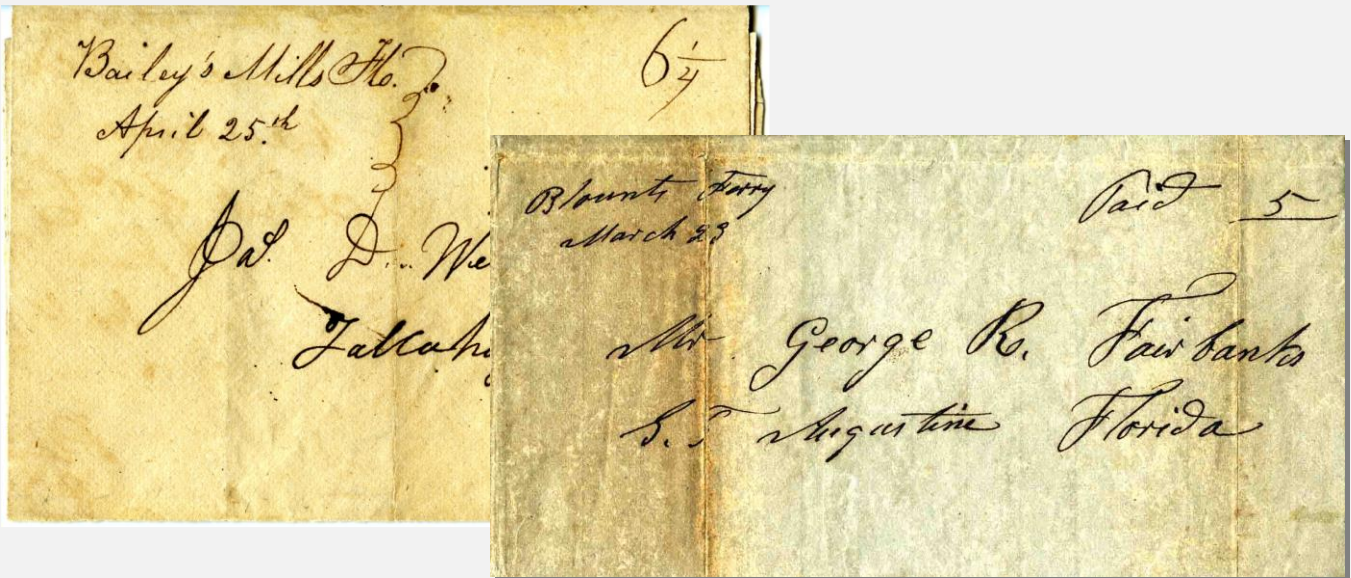 Bailey's Mills Flo.
April 25.th
6 1/4
Jas. D. We
Tallaha
Blounts Ferry
March 23
Paid 5
Mr George R. Fairbanks
S.T Augustine Florida